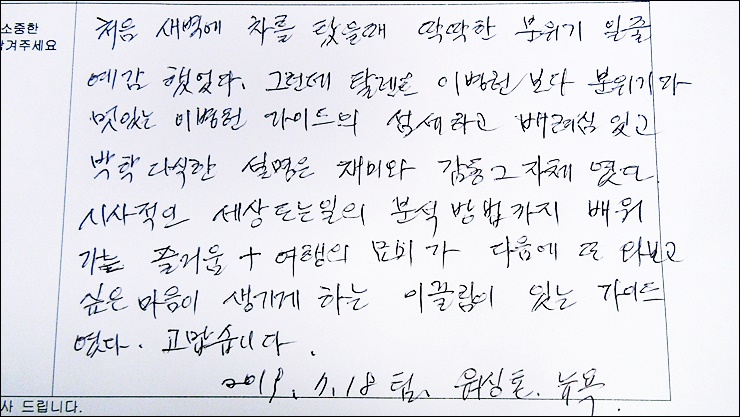 소중한
남겨주세요
처음 새벽에 차를 탔을때 딱딱한 분위기 일줄
예감 했었다. 그런데 탈렌트 이병헌 보다 분위기가
멋있는 이병헌 가이드의 섬세하고 배려심 있고
박학 다식한 설명은 재미와 감동 그 자체 였다.
시사적인 세상 도는일의 분석 방법까지 배워
가는 즐거움 + 여행의 묘미가 다음에 또 와보고
싶은 마음이 생기게 하는 이끌림이 있는 가이드
였다. 고맙습니다.
2019. 7. 18 팀. 워싱톤. 뉴욕.
사 드립니다.